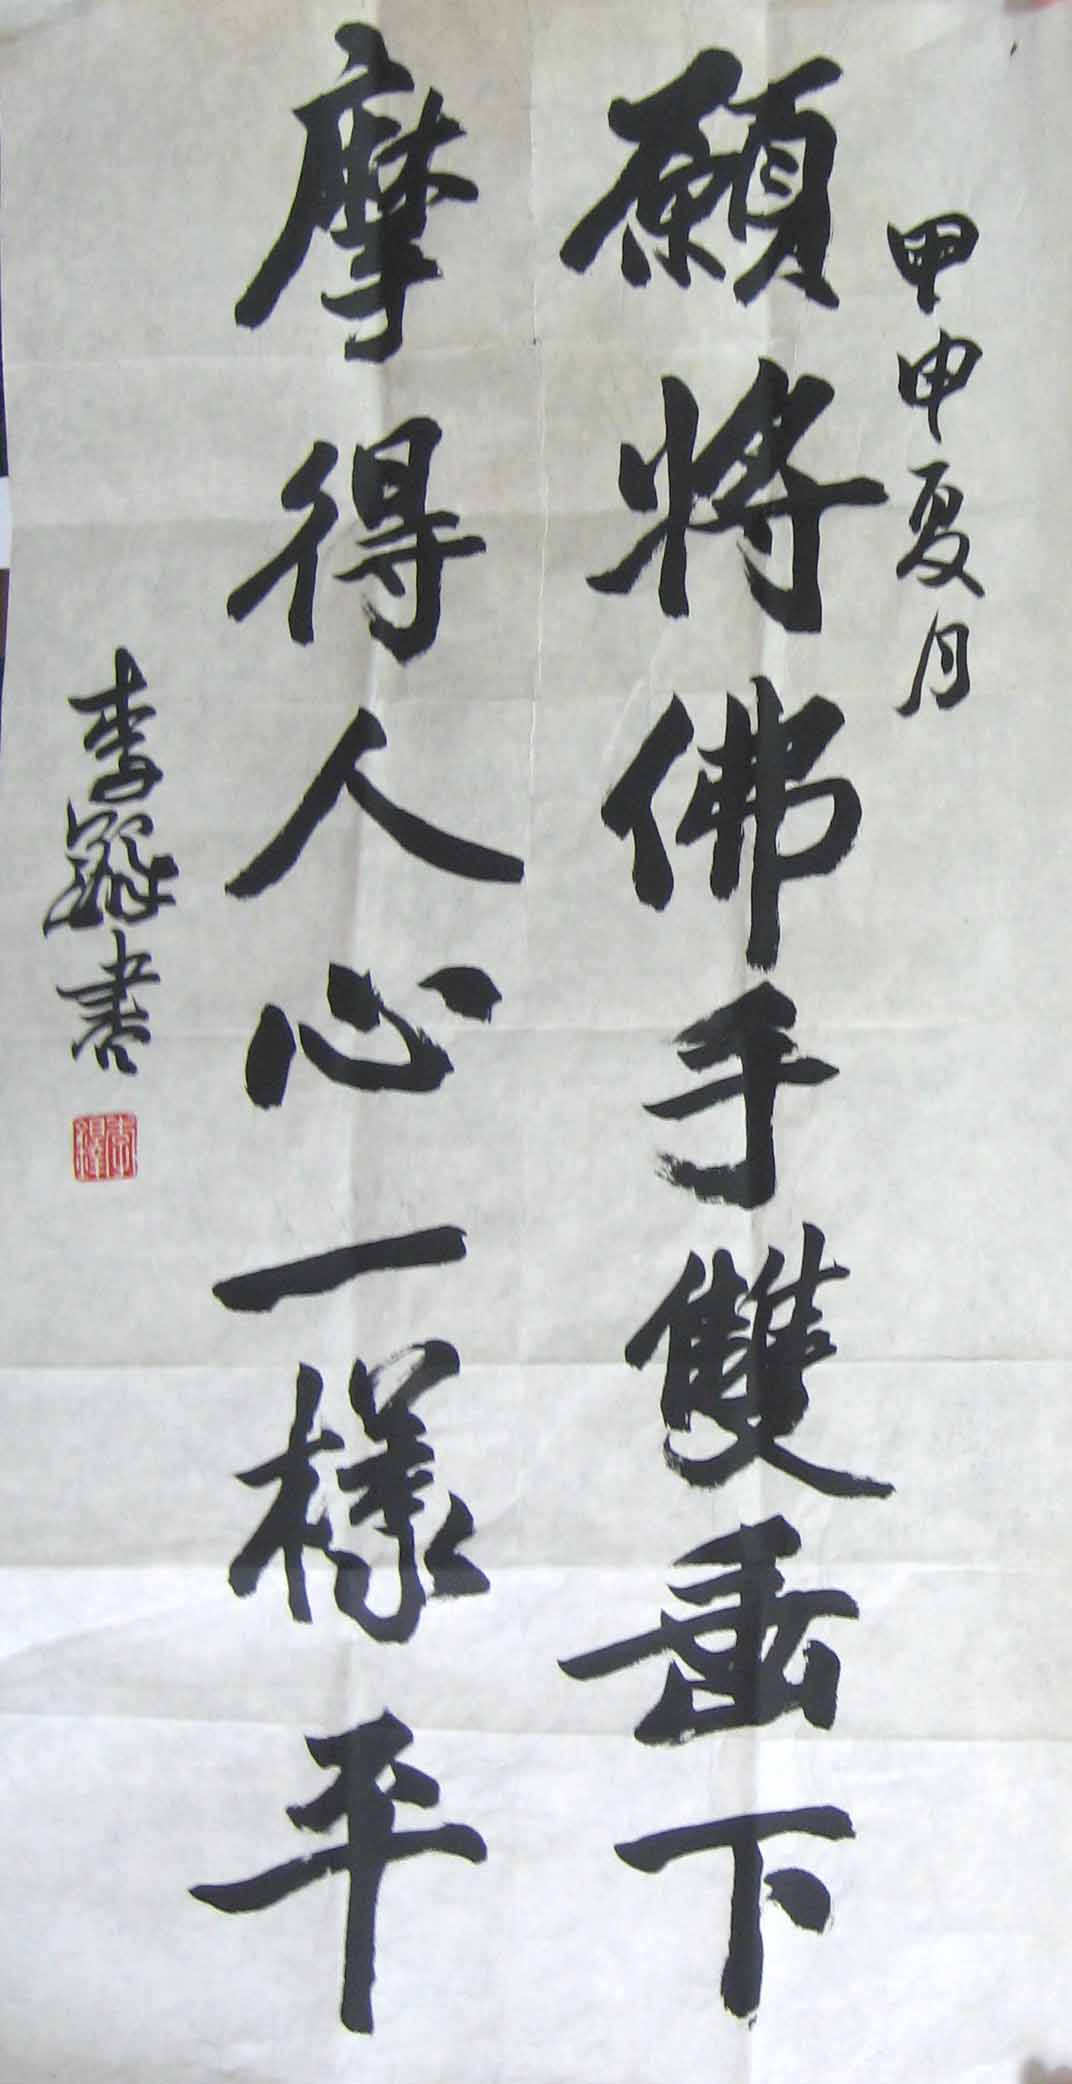 甲申夏月
願將佛手雙垂下
摩得人心一樣平
李鐸書
李鐸